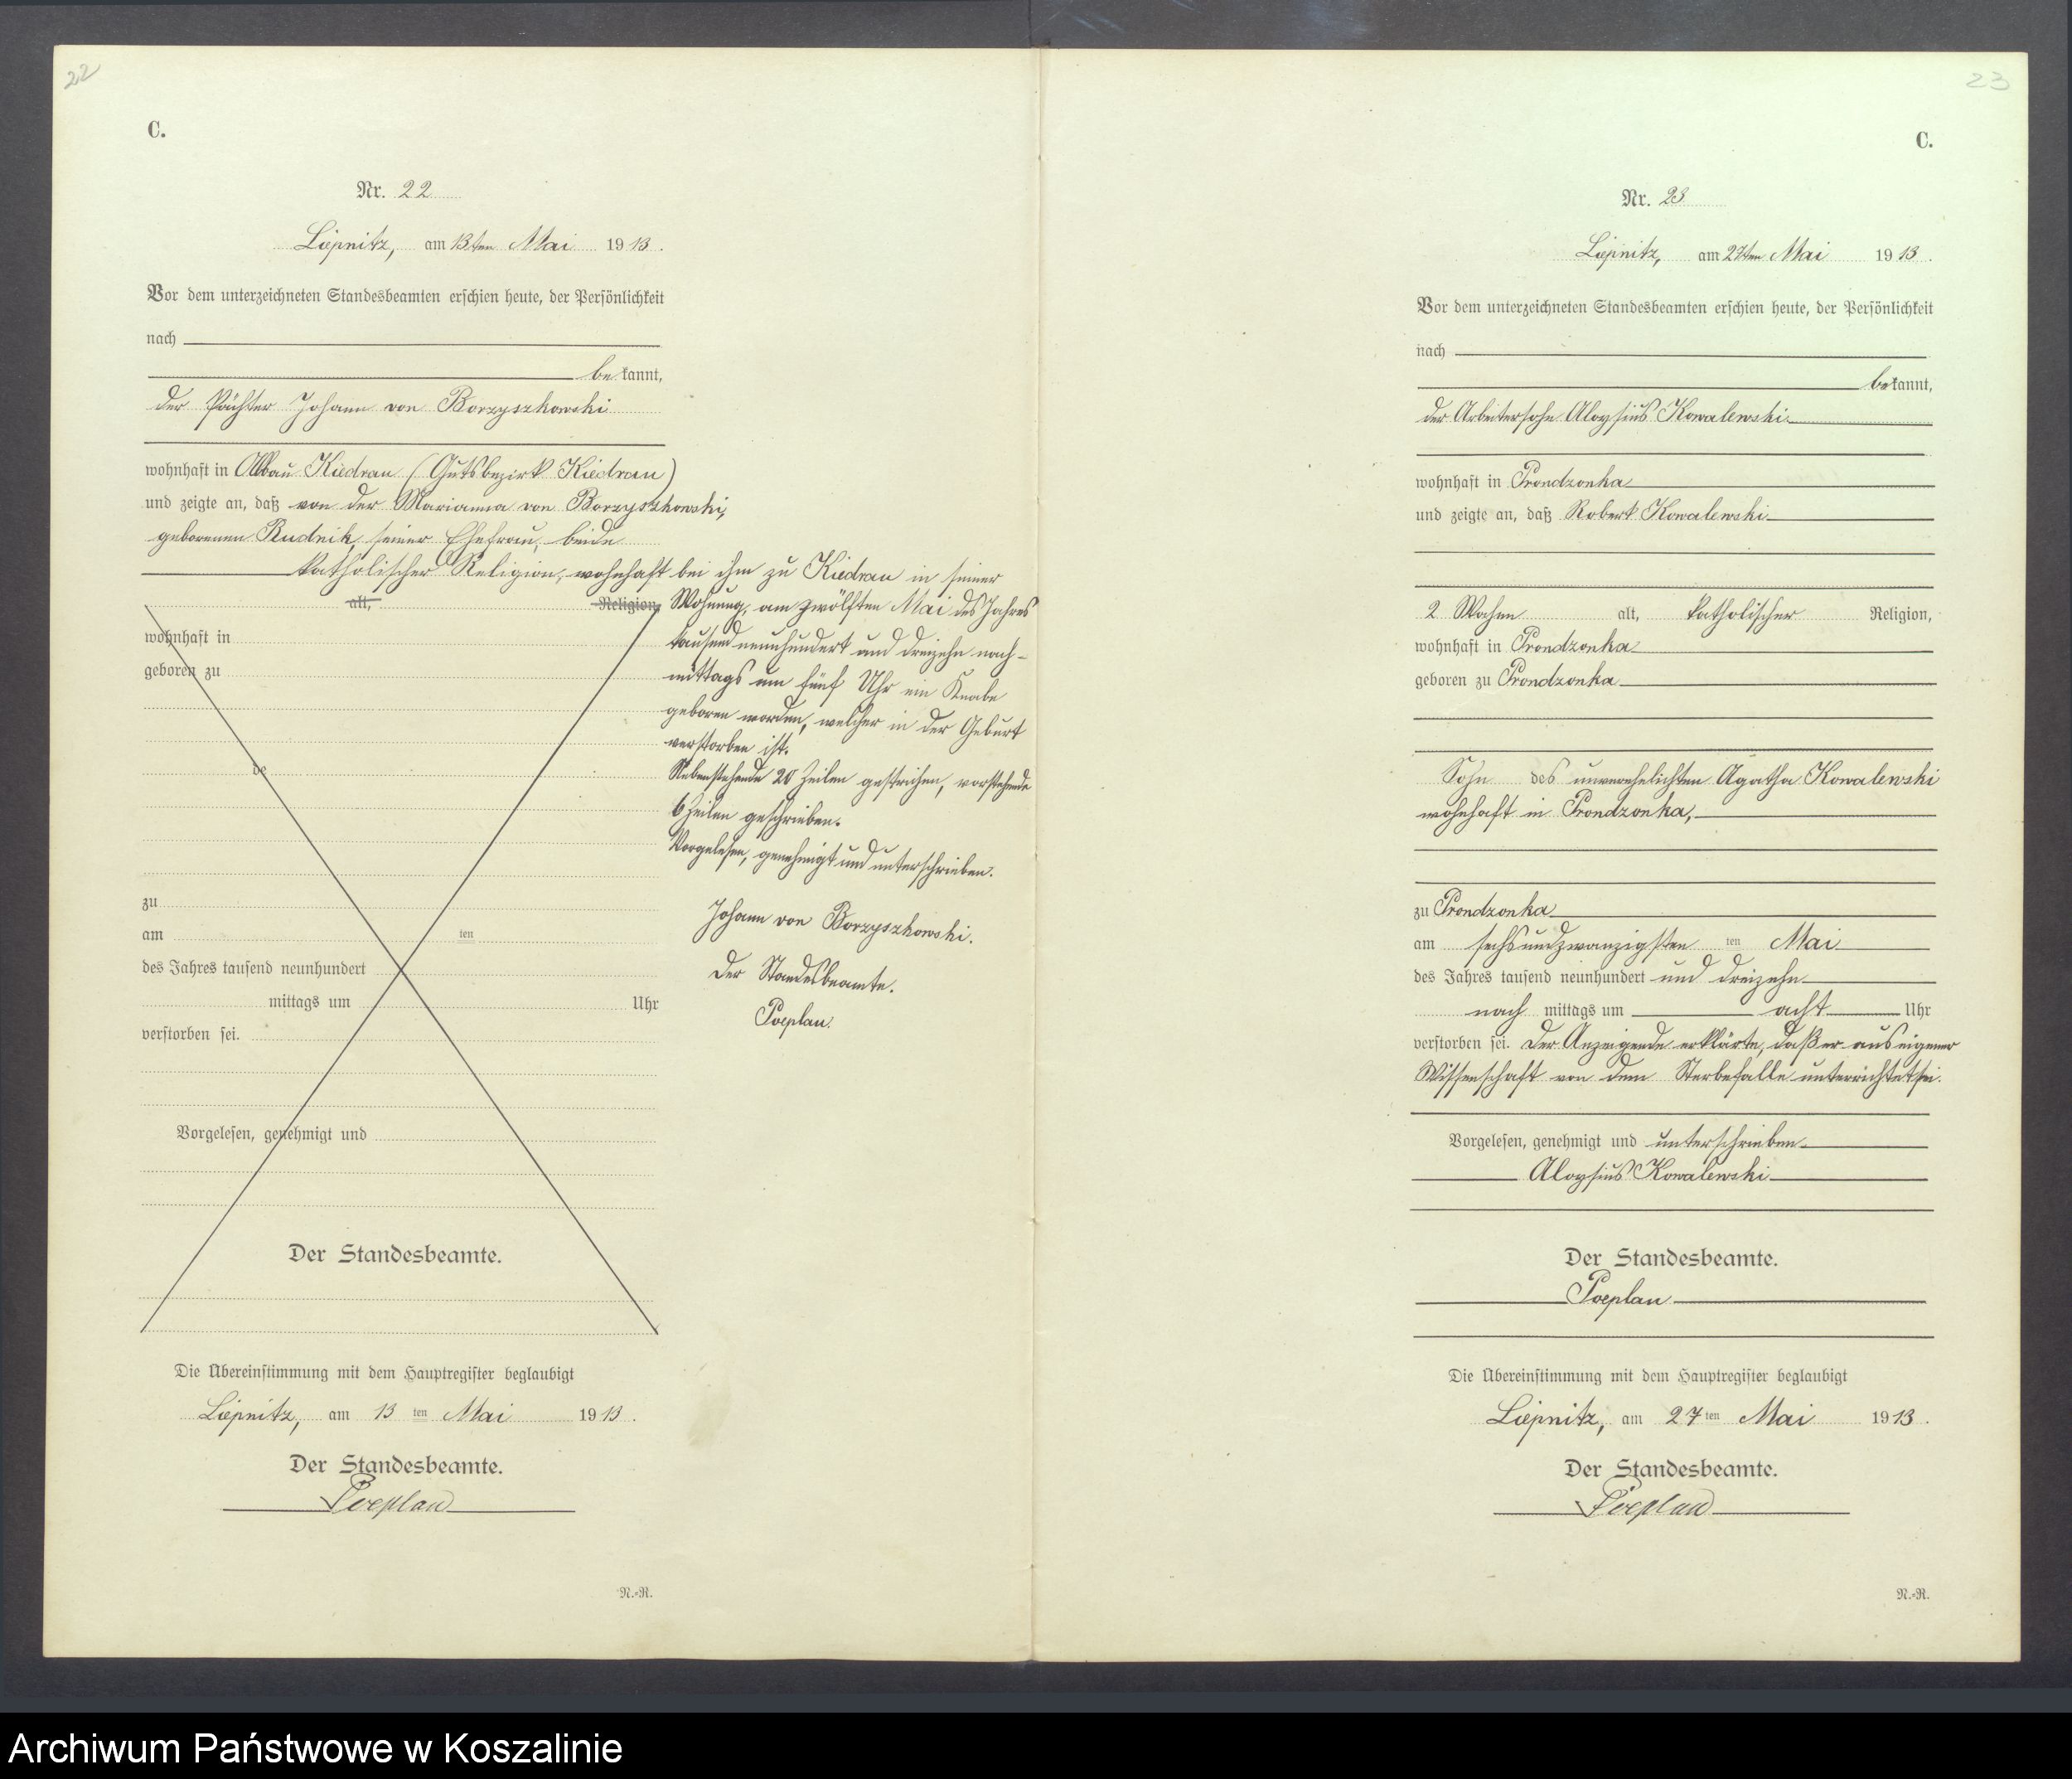 22
C.
Nr. 22
Liepnitz, am 13ten Mai 1913.
Vor dem unterzeichneten Standesbeamten erschien heute, der Persönlichkeit
nach
bekannt,
der Pächter Johann von Borzyszkowski
wohnhaft in Abbau Kiedrau (Gutsbezirk Kiedrau)
und zeigte an, daß von der Marianna von Borzyszkowski,
geborenen Rudnik, seiner Ehefrau, beide
katholischer Religion, wohnhaft bei ihm zu Kiedrau in seiner
alt, Religion, Wohnung, am zwölften Mai des Jahres
tausend neunhundert und dreizehn nach-
wohnhaft in
mittags um fünf Uhr ein Knabe
geboren zu
geboren worden, welcher in der Geburt
verstorben ist.
de
Nebenstehende 20 Zeilen gestrichen, vorstehende
6 Zeilen geschrieben.
Vorgelesen, genehmigt und unterschrieben.
zu
Johann von Borzyszkowski.
am ten
des Jahres tausend neunhundert
Der Standesbeamte.
mittags um Uhr
Poeplau.
verstorben sei.
Vorgelesen, genehmigt und
Der Standesbeamte.
Die Übereinstimmung mit dem Hauptregister beglaubigt
Liepnitz, am 13 ten Mai 1913.
Der Standesbeamte.
Poeplau
N.-R.
23
C.
Nr. 23
Liepnitz, am 27ten Mai 1913.
Vor dem unterzeichneten Standesbeamten erschien heute, der Persönlichkeit
nach
bekannt,
der Arbeitersohn Aloysius Kowalewski
wohnhaft in Prondzonka
und zeigte an, daß Robert Kowalewski
2 Wochen alt, katholischer Religion,
wohnhaft in Prondzonka
geboren zu Prondzonka
Sohn des unverehelichten Agatha Kowalewski
wohnhaft in Prondzonka,
zu Prondzonka
am sechsundzwanzigsten ten Mai
des Jahres tausend neunhundert und dreizehn
nach mittags um acht Uhr
verstorben sei. Der Anzeigende erklärte, daß er aus eigener
Wissenschaft von dem Sterbefalle unterrichtet sei.
Vorgelesen, genehmigt und unterschrieben
Aloysius Kowalewski
Der Standesbeamte.
Poeplau
Die Übereinstimmung mit dem Hauptregister beglaubigt
Liepnitz, am 27 ten Mai 1913.
Der Standesbeamte.
Poeplau
N.-R.
Archiwum Państwowe w Koszalinie